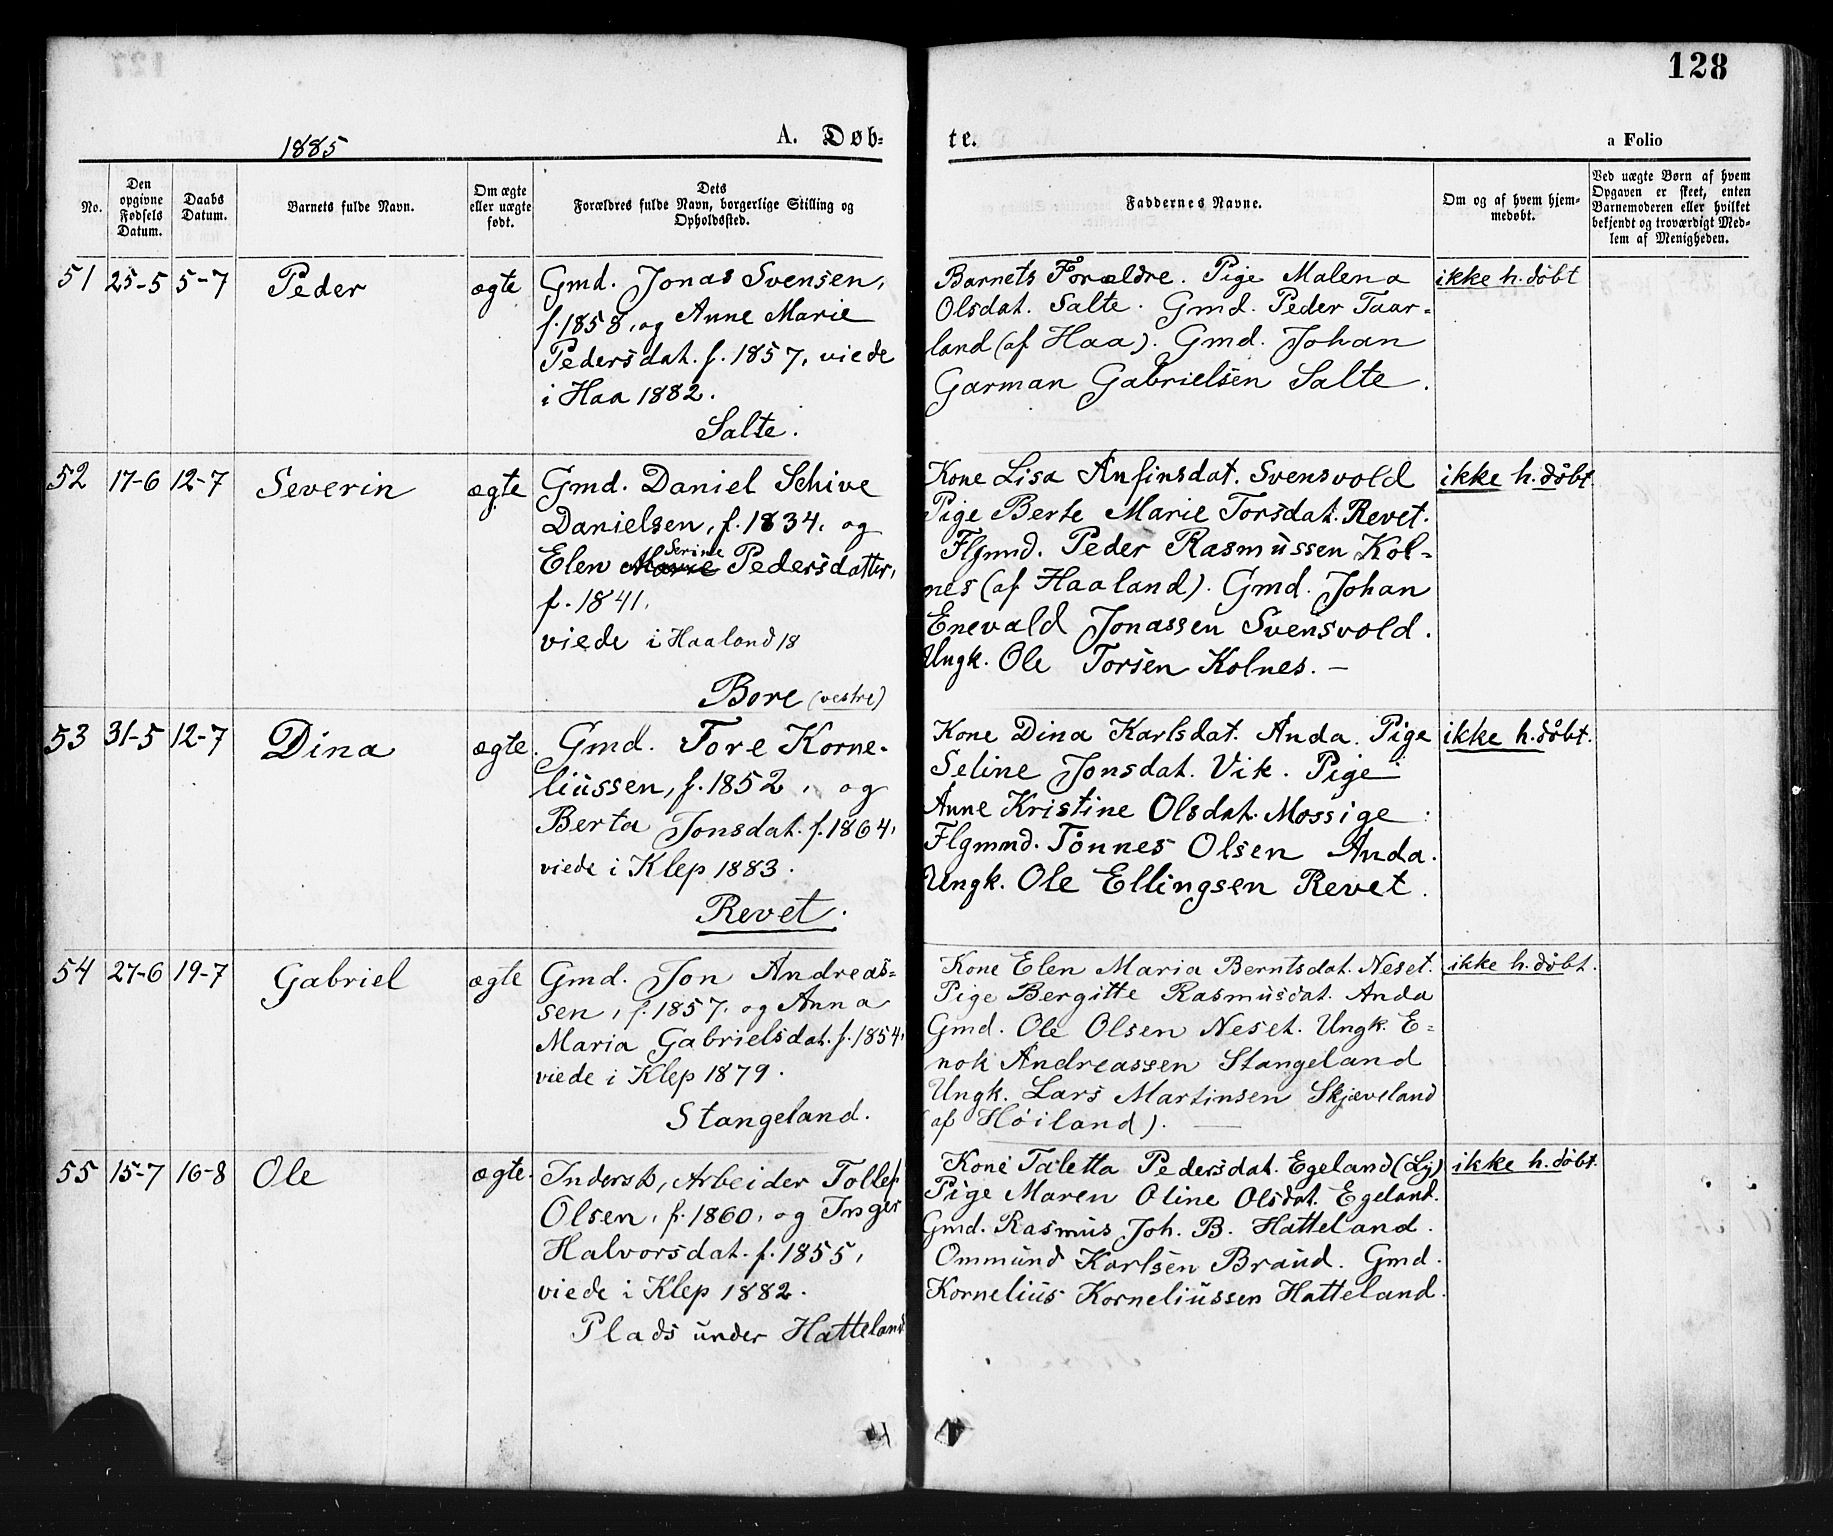 128
1885
A. Døb-
te.
a Folio
No.
Den opgivne Fødsels Datum.
Daabs Datum.
Barnets fulde Navn.
Om ægte eller uægte født.
Dets Forældres fulde Navn, borgerlige Stilling og Opholdssted.
Faddernes Navne.
Om og af hvem hjem-
medøbt.
Ved uægte Børn af hvem
Opgaven er skeet, enten
Barnemoderen eller hvilket
bekjendt og troværdigt Med-
lem af Menigheden.
51 25-5 5-7 Peder ægte
Gmd. Jonas Svensen,
f. 1858, og Anne Marie
Pedersdat. f. 1857, viede
i Haa 1882.
Salte.
Barnets Forældre. Pige Malena
Olsdat. Salte. Gmd. Peder Taar-
land (af Haa). Gmd. Johan
Garman Gabrielsen Salte.
ikke h. døbt
52 17-6 12-7 Severin ægte
Gmd. Daniel Schive
Danielsen, f. 1834, og
Serine
Elen Marie Pedersdatter,
f. 1841,
viede i Haaland 18
Bore (vestre)
Kone Lisa Anfinsdat. Svensvold
Pige Berte Marie Torsdat. Revet.
Flgmnd. Peder Rasmussen Kol-
nes (af Haaland). Gmd. Johan
Enevald Jonassen Svensvold.
Ungk. Ole Torsen Kolnes. —
ikke h. døbt
53 31-5 12-7 Dina ægte.
Gmd. Tore Korne-
liussen, f. 1852, og
Berta Jonsdat. f. 1864,
viede i Klep 1883.
Revet.
Kone Dina Karlsdat. Anda. Pige
Seline Jonsdat. Vik. Pige
Anne Kristine Olsdat. Mossige
Flgmnd. Tønnes Olsen Anda.
Ungk. Ole Ellingsen Revet.
ikke h. døbt.
54 27-6 19-7 Gabriel ægte
Gmd. Jon Andreas-
sen, f. 1857, og Anna
Maria Gabrielsdat. f. 1854,
viede i Klep 1879.
Stangeland.
Kone Elen Maria Berntsdat. Neset.
Pige Bergitte Rasmusdat. Anda
Gmd. Ole Olsen Neset. Ungk. E-
nok Andreassen Stangeland
Ungk. Lars Martinsen Skjæveland
(af Høiland). —
ikke h. døbt.
55 15-7 16-8 Ole ægte.
Inderst, Arbeider Tollef
Olsen, f. 1860, og Inger
Halvorsdat. f. 1855,
viede i Klep 1882.
Plads under Hatteland
Kone Taletta Pedersdat. Egeland (Ly)
Pige Maren Oline Olsdat. Egeland.
Gmd. Rasmus Joh. B. Hatteland.
Ommund Karlsen Braud. Gmd.
Kornelius Korneliussen Hatteland.
ikke h. døbt.